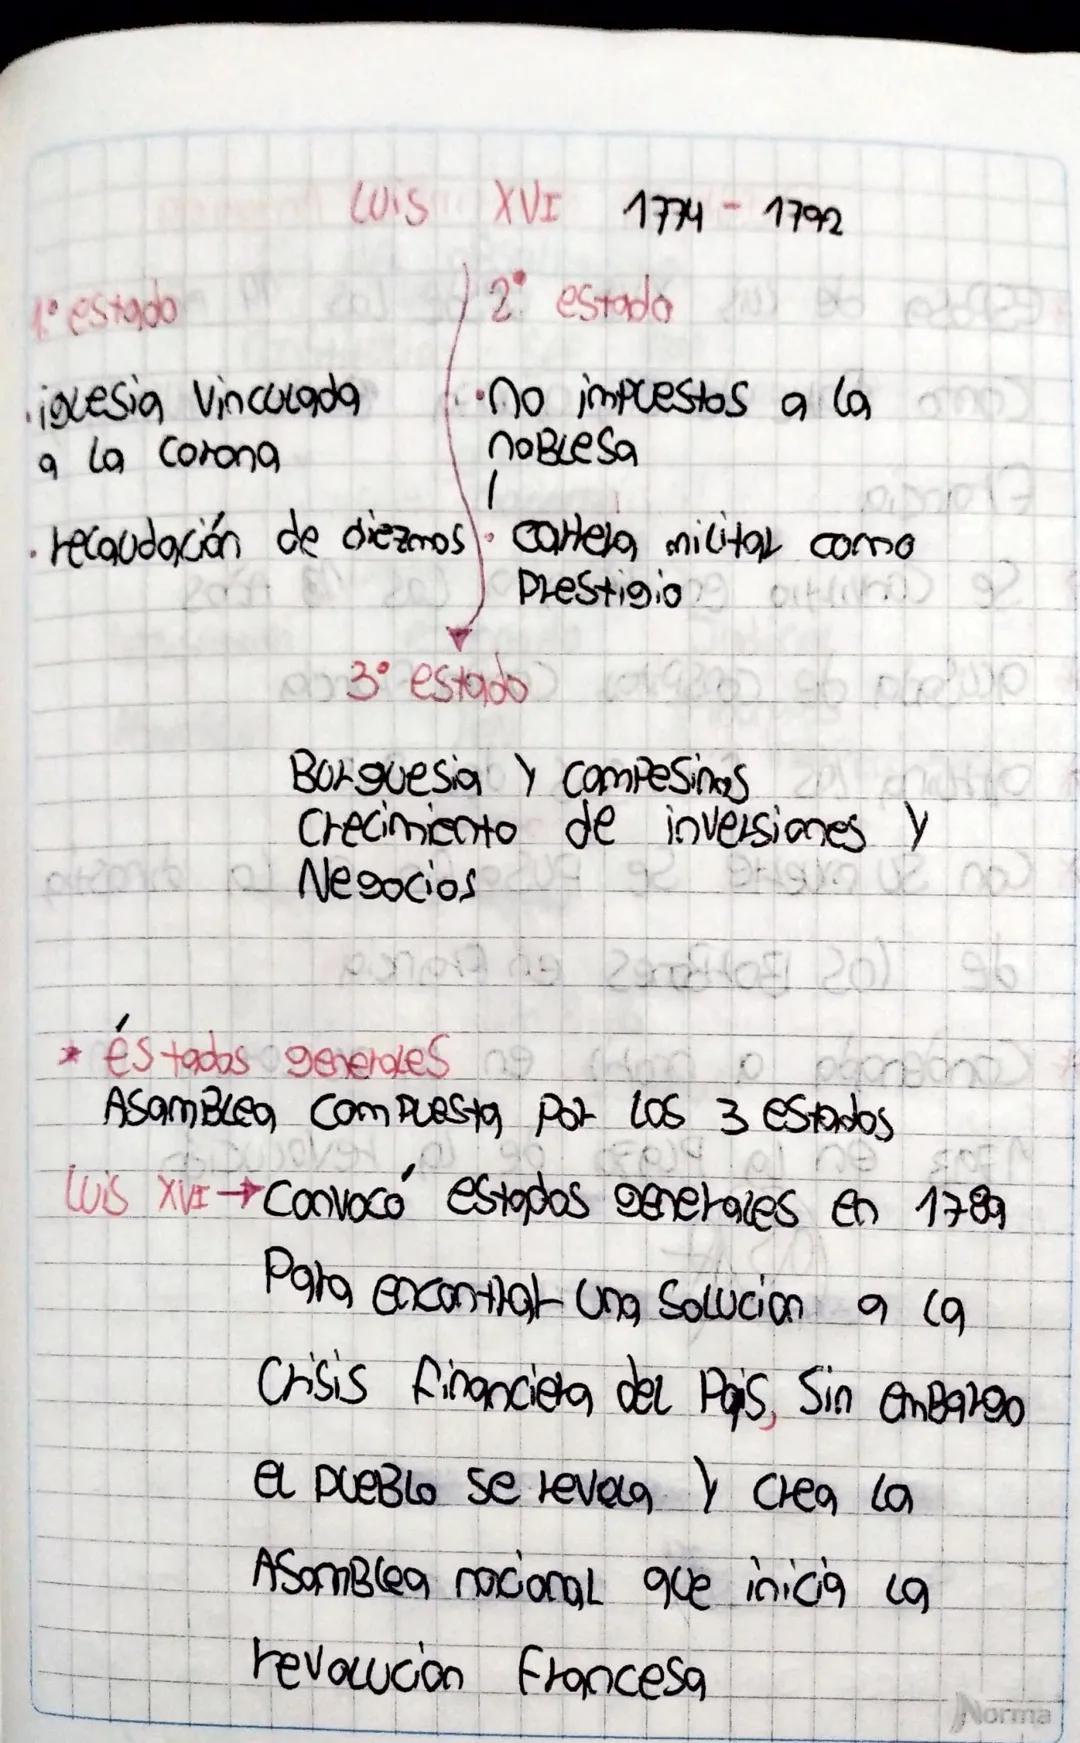 Luis XVI 1774 - 1792
1.º estado
· iglesia vinculada
a la corona
· recaudación de diezmos
2º estado
· no impuestos a la
noblesa
· carrera militar como
prestigio
3º estado
Burguesia y campesinos
Crecimiento de inversiones y
Negocios
* éstados generales
Asamblea compuesta por los 3 estados
Luis XVI → Convocó estados generales en 1789
Para encontrar una solucion a la
Crisis financiera del Pais, Sin embargo
el pueblo se revela y crea la
Asamblea nacional que inicia la
revolucion Francesa
Norma